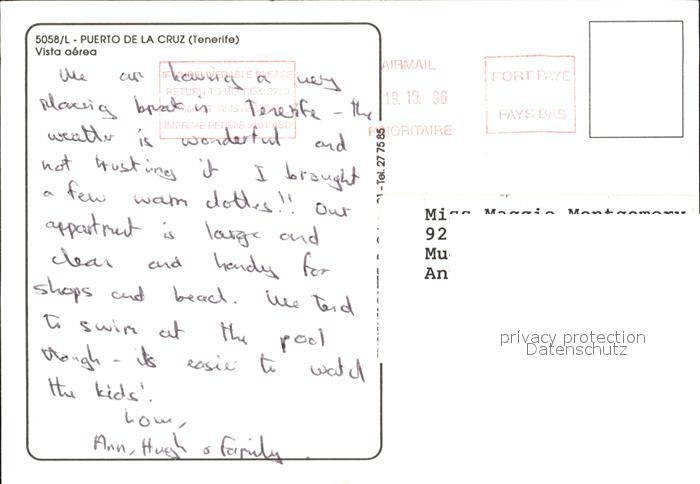 5058/L - PUERTO DE LA CRUZ (Tenerife)
Vista aérea
We are having a very
relaxing break in Tenerife - the
weather is wonderful and
not trusting it I brought
a few warm clothes!! Our
appartment is large and
clean and handy for
shops and beach. We tend
to swim at the pool
though - its easier to watch
the kids!.
Love,
Ann, Hugh & family.
IF UNDELIVERABLE PLEASE
RETURN TO
AIRMAIL
19.10. 96
PRIORITAIRE
PORT PAYE
PAYS-BAS
- Tel. 27 75 85
Miss Maggie Montgomery
92
Mu
An
privacy protection
Datenschutz